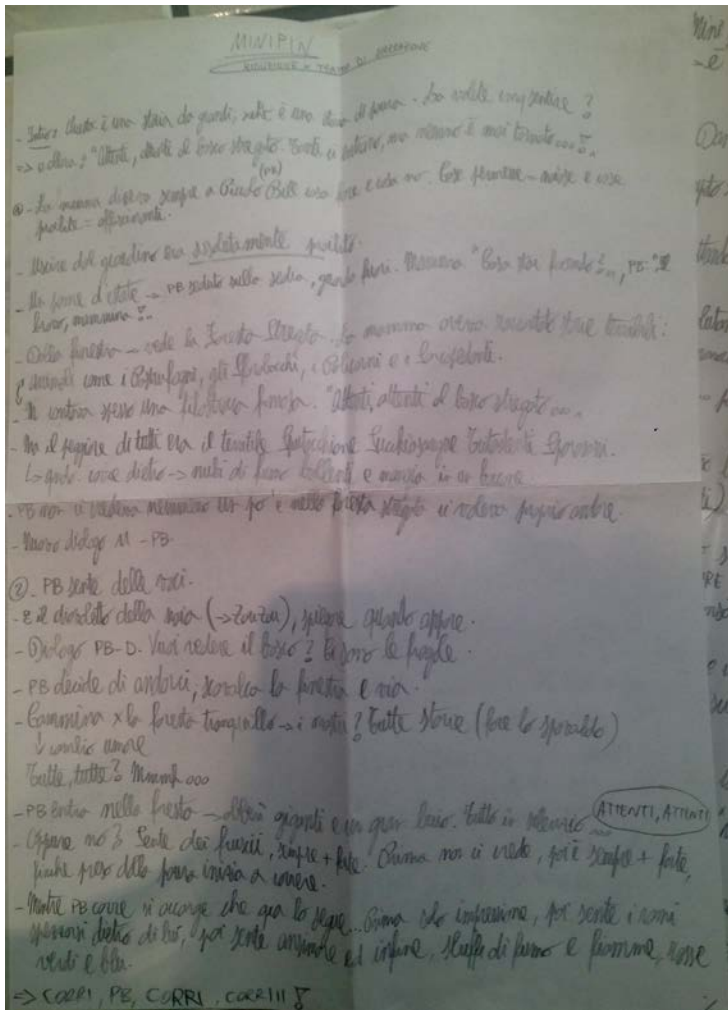 MINIPIN
RIDUZIONE e TRAMA DI NARRAZIONE
- Intro: Questa è una storia da grandi, nella è una storia di paura. La volete comunque sentire?
=> allora: "Attenti, attenti al bosco stregato. Tanti ci entrano, ma nessuno è mai tornato...".
- La mamma diceva sempre a Piccolo Bill cosa fare e cosa no. Cose permesse = noiose e cose
proibite = affascinanti.
- Uscire dal giardino era assolutamente proibito.
- Un giorno d'estate -> PB seduto sulla sedia, guarda fuori. Mamma "Cosa stai facendo?..., PB"
buono, mammina
- Dalla finestra - vede la Foresta Stregata. La mamma aveva raccontato storie terribili:
animali come i
- Si cantava spesso una filastrocca famosa. "Attenti, attenti al bosco stregato...
- Ma il peggiore di tutti era il terribile Sputacchione Succhiasangue
quando corre dietro -> nubi di fumo bollenti e mangia in un boccone
- PB non ci credeva nemmeno un po' e nella foresta stregata ci voleva proprio andare.
- Nuovo dialogo M - PB
② - PB sente delle voci.
- È il diavoletto della noia (-> ZouZou), spiegare quando appare.
- Dialogo PB-D. Vuoi vedere il bosco? Ci sono le fragole.
- PB decide di andarci, scavalca la finestra e via.
- Cammina x la foresta tranquillo -> i mostri? Tutte storie (fare lo spavaldo)
↓ cambio umore
Tutte, tutte? Mmmh...
- PB entra nella foresta -> alberi giganti e un gran buio. Tutto in silenzio... ATTENTI, ATTENTI
- Oppure no? Sente dei fruscii, sempre + forte. Prima non ci crede, poi è sempre + forte,
finché preso dalla paura inizia a correre.
- Mentre PB corre si accorge che qua lo segue... Prima solo impressione, poi sente i rami
spezzarsi dietro di lui, poi sente ansimare ed infine, sbuffi di fumo e fiamme, rosse
verdi e blu.
=> CORRI, PB, CORRI, CORRIII!